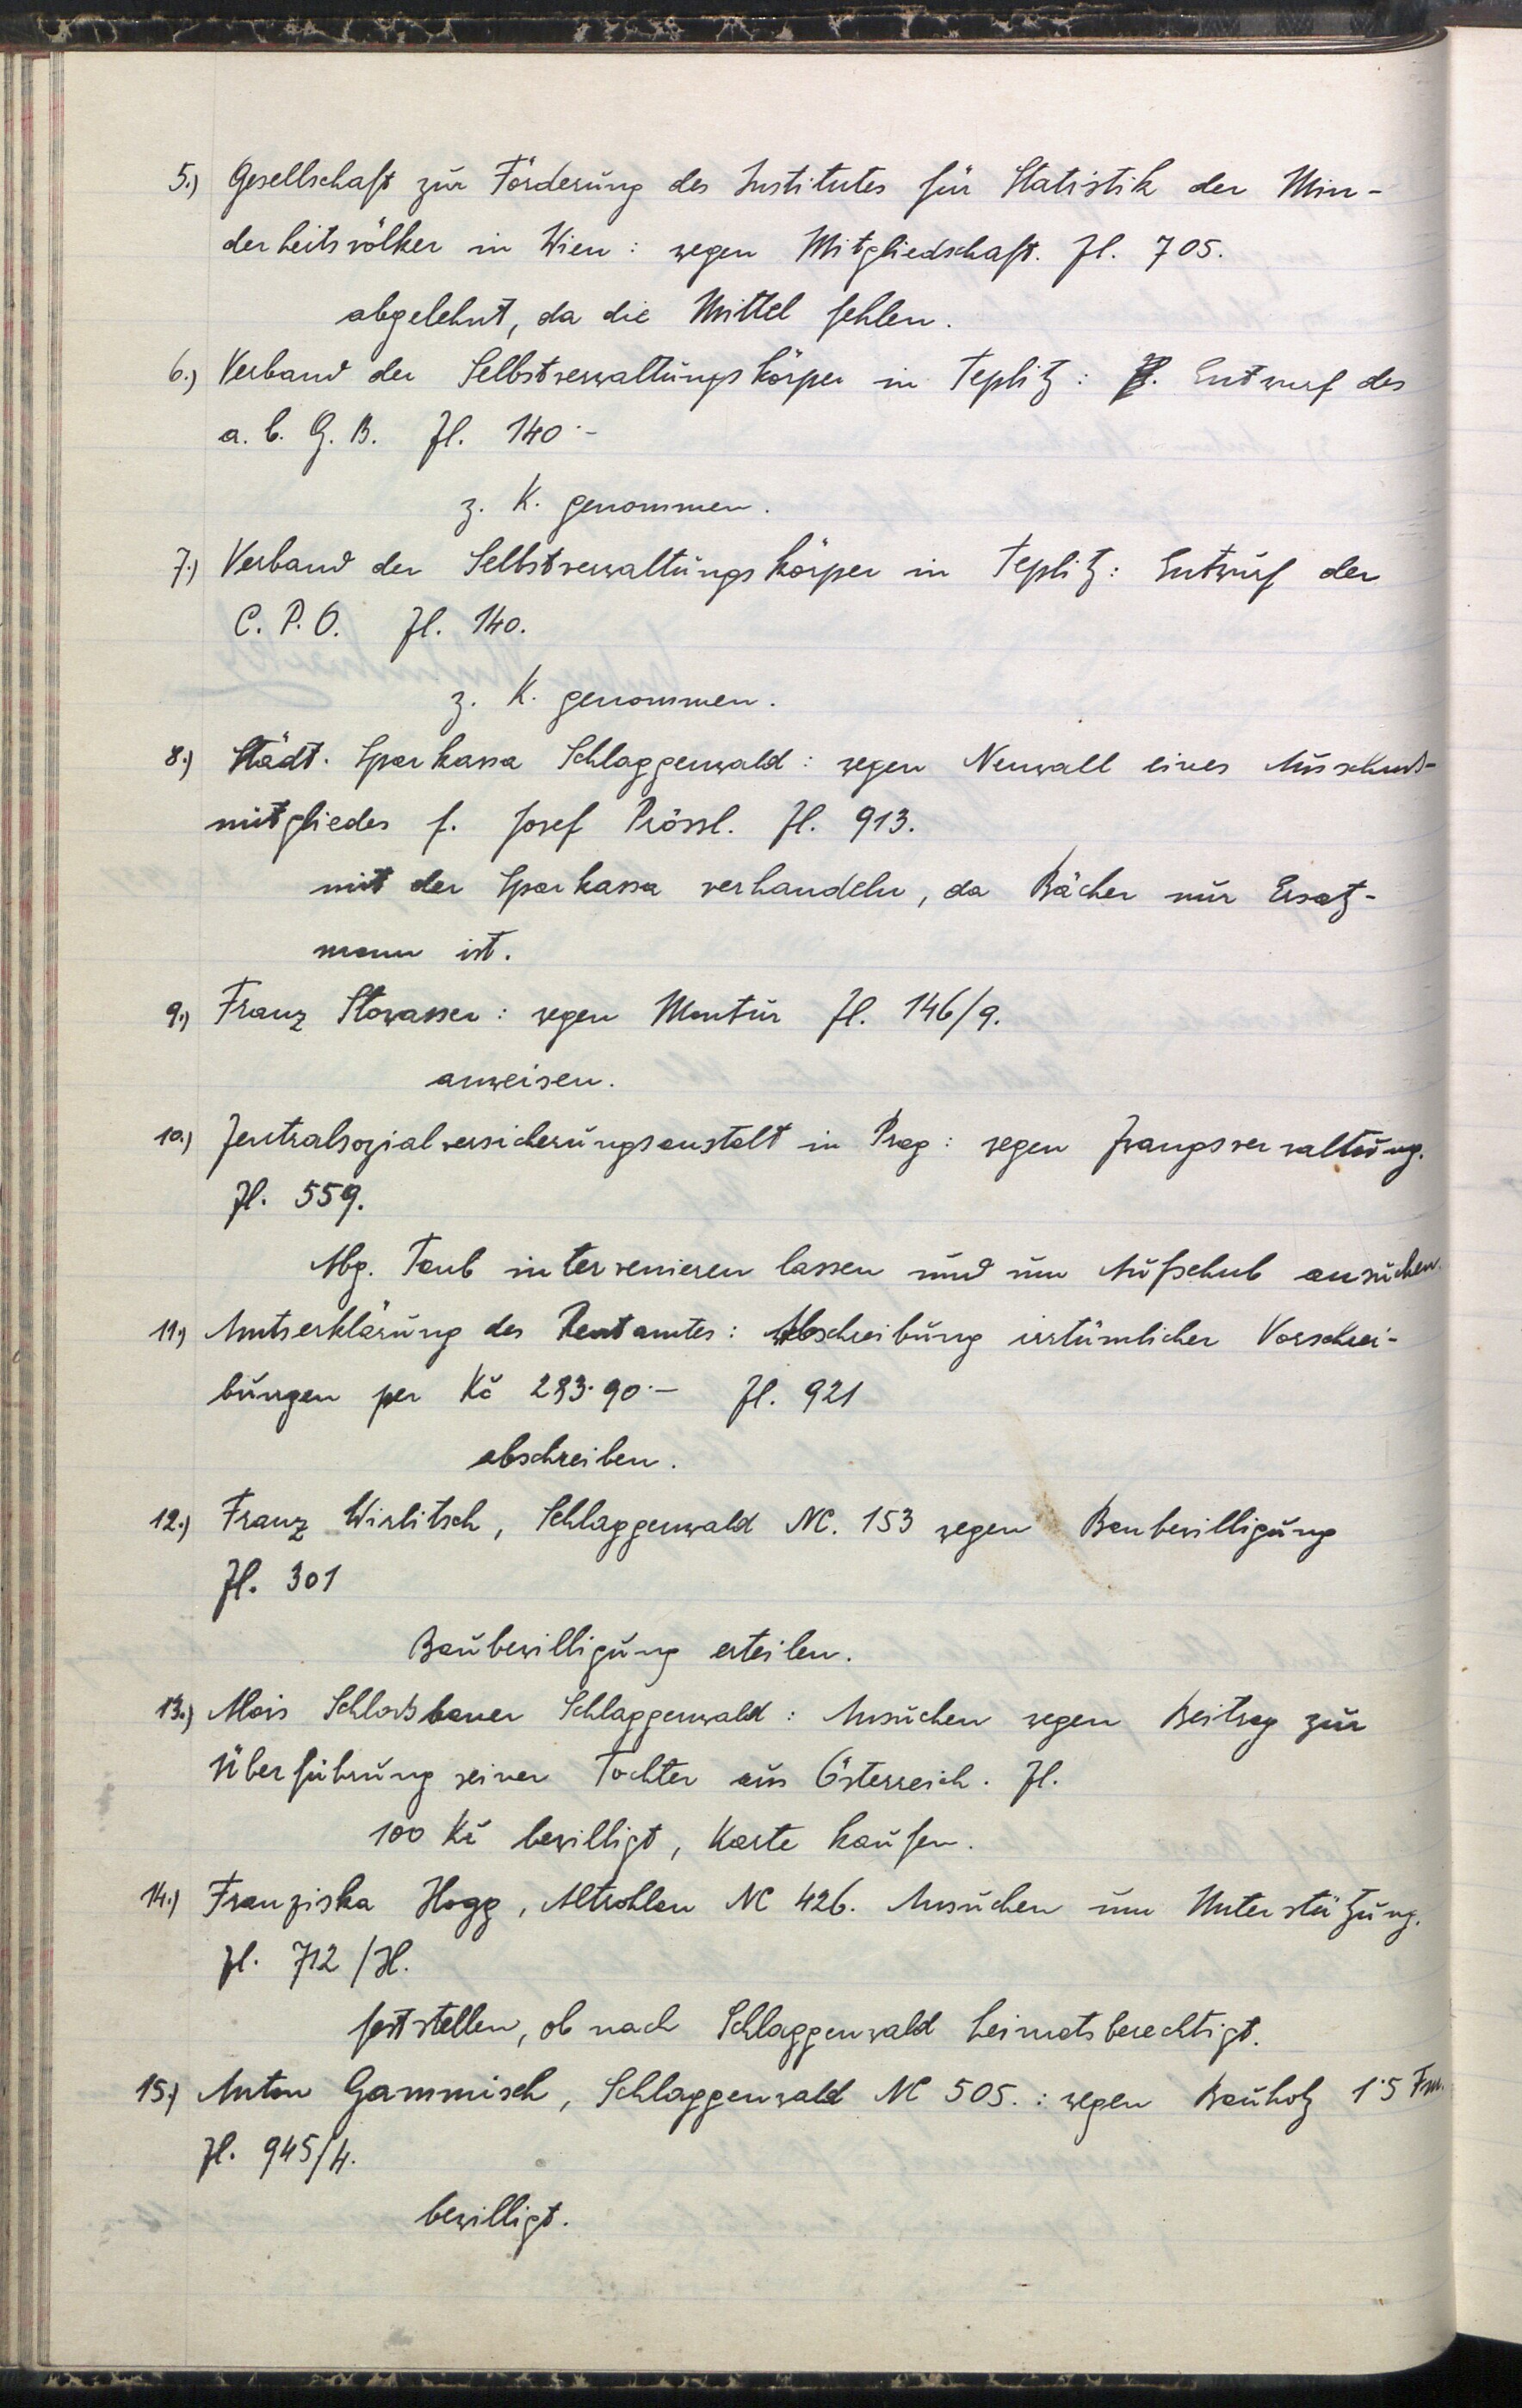 5.) Gesellschaft zur Förderung des Institutes für Statistik der Min-
derheitsvölker in Wien: wegen Mitgliedschaft. Zl. 705.
abgelehnt, da die Mittel fehlen.
6.) Verband der Selbstverwaltungskörper in Teplitz: Entwurf des
a. b. G. B. Zl. 140.-
z. K. genommen.
7.) Verband der Selbstverwaltungskörper in Teplitz: Entwurf der
C. P. O. Zl. 140.
z. K. genommen.
8.) Städt. Sparkassa Schlaggenwald: wegen Neuwall eines Ausschuß-
mitgliedes f. Josef Prössl. Zl. 913.
mit der Sparkassa verhandeln, da Bächer nur Ersatz-
mann ist.
9.) Franz Stowasser: wegen Montur Zl. 146/9.
anweisen.
10.) Zentralsozialversicherungsanstalt in Prag: wegen Zwangsverwaltung.
Zl. 559.
Abg. Taub intervenieren lassen und um Aufschub ansuchen.
11.) Amtserklärung des Rentamtes: Abschreibung irrtümlicher Vorschrei-
bungen per Kč 283.90.- Zl. 921
abschreiben.
12.) Franz Wirlitsch, Schlaggenwald NC. 153 wegen Baubewilligung
Zl. 301
Baubewilligung erteilen.
13.) Alois Schloßbauer Schlaggenwald: Ansuchen wegen Beitrag zur
Überführung seiner Tochter aus Österreich. Zl.
100 Kč bewilligt, Karte kaufen.
14.) Franziska Hogg, Altrohlau NC 426. Ansuchen um Unterstützung.
Zl. 712/H.
feststellen, ob nach Schlaggenwald heimatsberechtigt.
15.) Anton Gammisch, Schlaggenwald NC 505.: wegen Bauholz 1.5 Fm.
Zl. 945/4.
bewilligt.